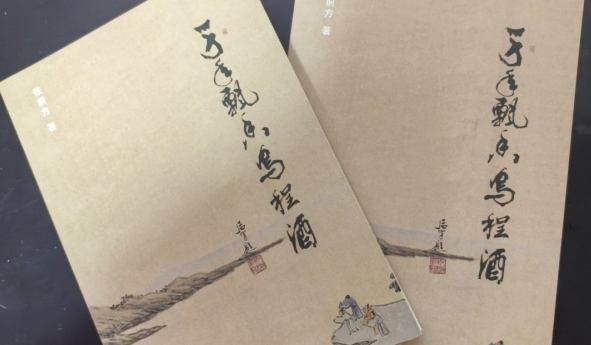 千年飘香乌程酒
张前方 著
千年飘香乌程酒
前方 著